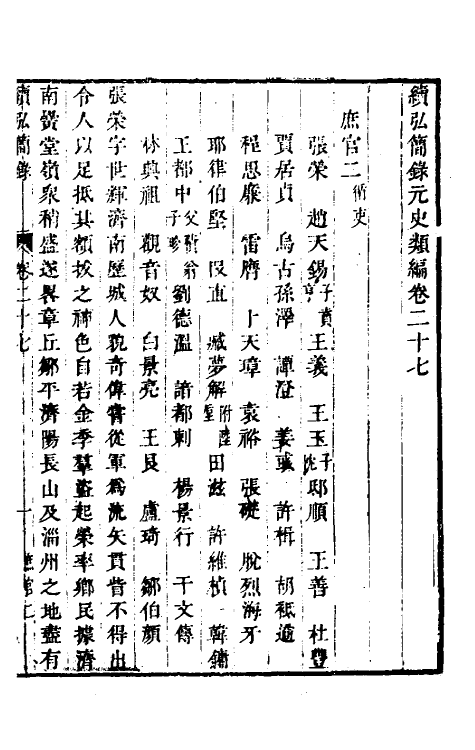 續弘簡錄元史類編卷二十七
庶官二 循吏
張榮 趙天錫 子賁亨 王義 王玉 子忱 邸順 王善 杜豐
賈居貞 烏古孫澤 譚澄 姜彧 許楫 胡祗遹
程思廉 雷膺 卜天璋 袁裕 張礎 脫烈海牙
耶律伯堅 段直 臧夢解 附陸垕 田滋 許維楨 韓鏞
王都中 父積翁 子畛 劉德溫 諳都剌 楊景行 干文傳
林興祖 觀音奴 白景亮 王艮 盧琦 鄒伯顏
張榮字世輝濟南歷城人貌奇偉嘗從軍為流矢貫眥不得出
令人以足抵其額拔之神色自若金季羣盜起榮率鄉民據濟
南黌堂嶺衆稍盛遂畧章丘鄒平濟陽長山及淄州之地盡有
續弘簡錄 卷二十七 一